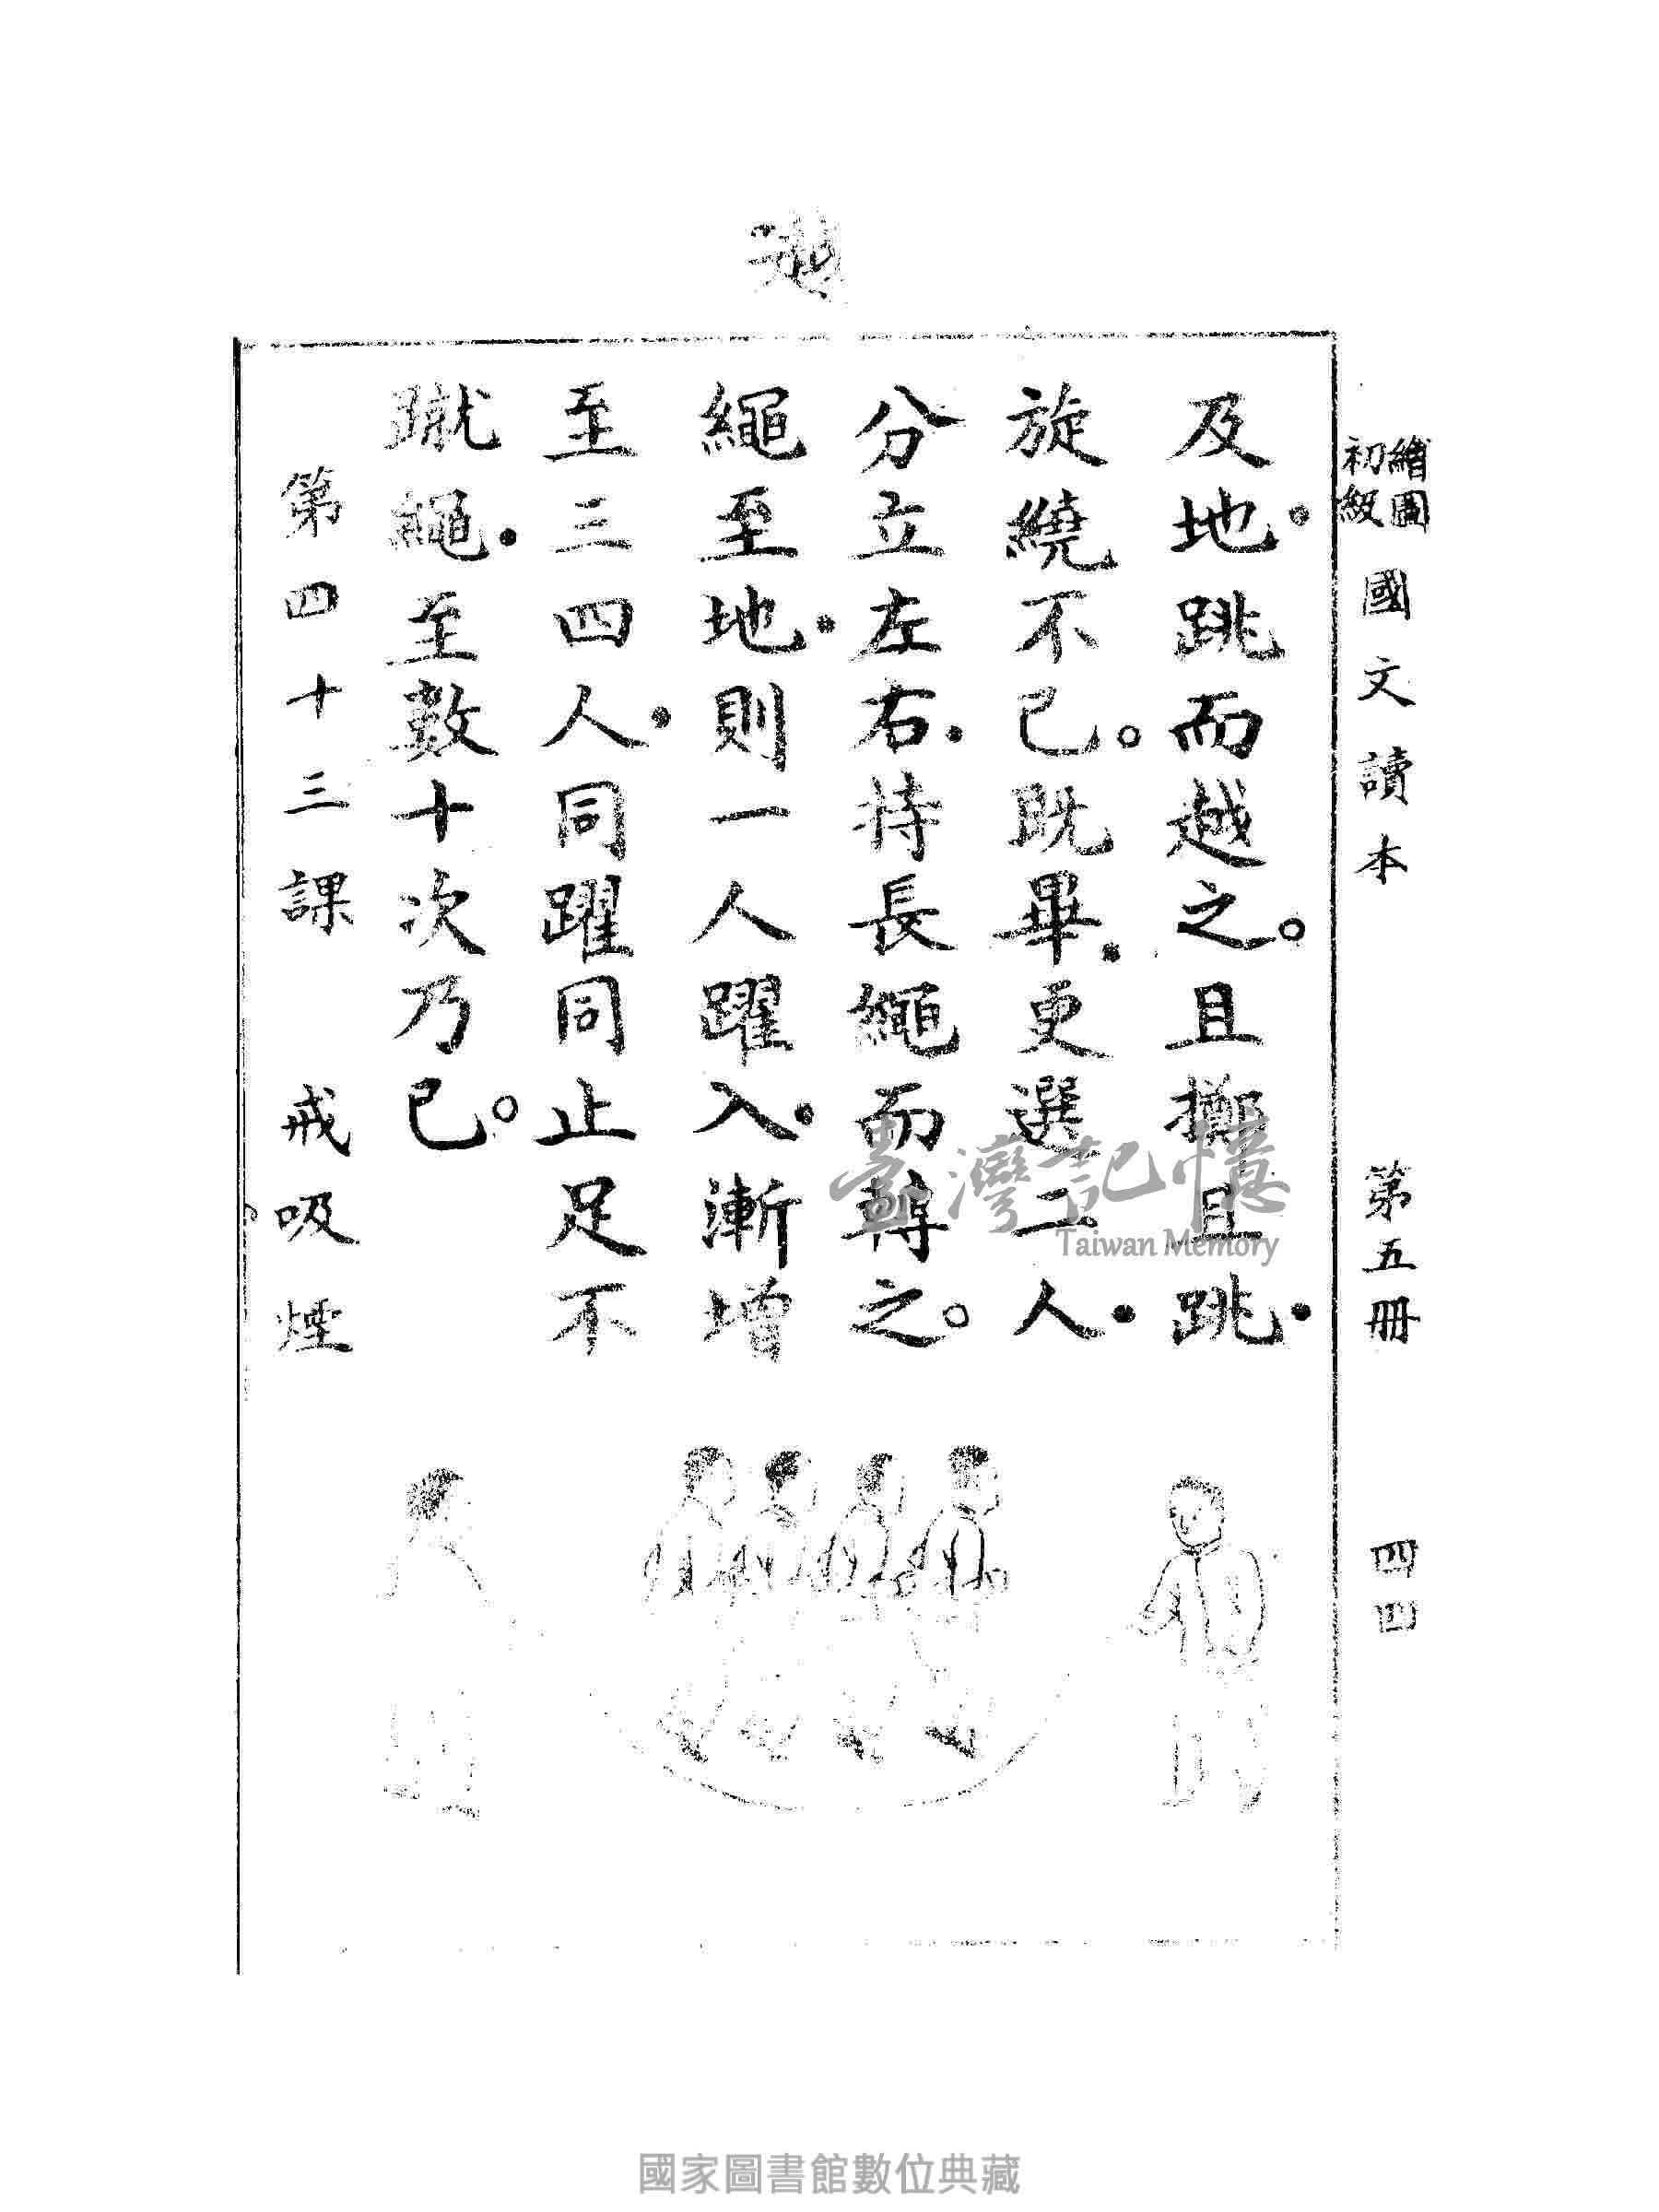 繪圖初級 國文讀本 第五冊 四四
及地．跳而越之。且擲且跳．
旋繞不已。既畢．更選二人．
分立左右．持長繩而轉之。
繩至地．則一人躍入．漸增
至三四人．同躍同止足不
蹴繩．至數十次乃已。
第四十三課 戒吸煙
臺灣記憶
Taiwan Memory
國家圖書館數位典藏